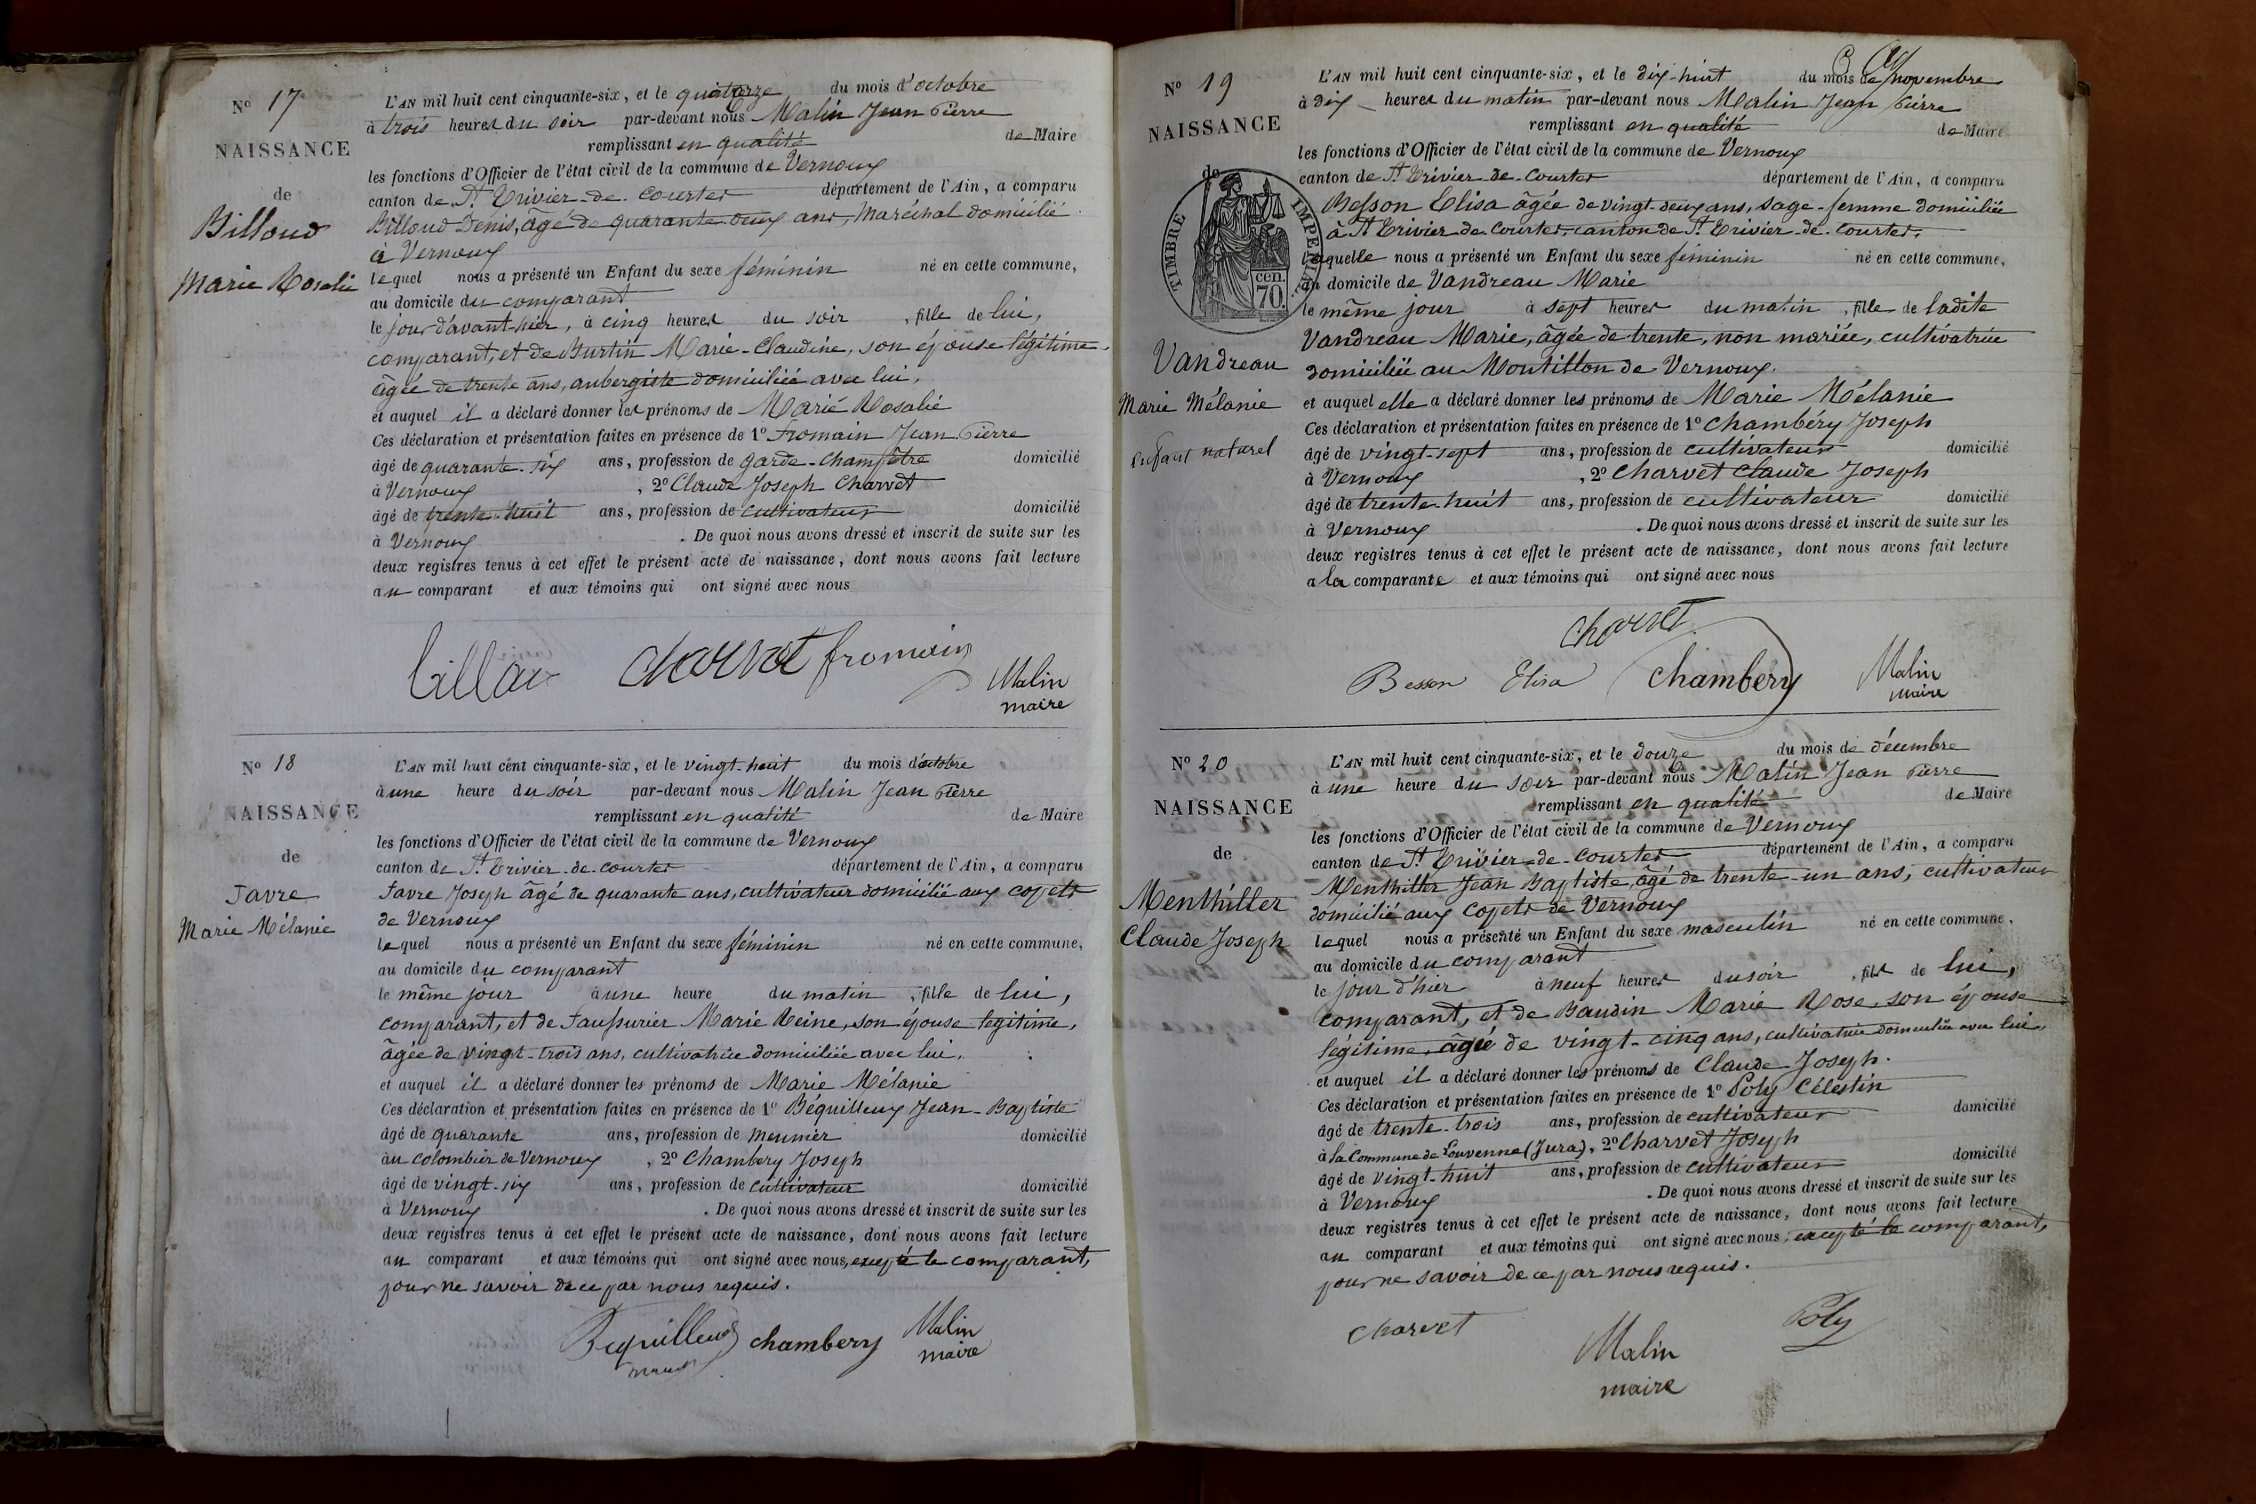 N° 17
NAISSANCE
de
Billoud
Marie Rosalie
L'AN mil huit cent cinquante-six, et le quatorze du mois d'octobre
à trois heures du soir par-devant nous Malin Jean Pierre
remplissant en qualité de Maire
les fonctions d'Officier de l'état civil de la commune de Vernoux
canton de St Trivier-de-Courtes département de l'Ain, a comparu
Billoud Denis, âgé de quarante-deux ans, Maréchal domicilié
à Vernoux
lequel nous a présenté un Enfant du sexe féminin né en cette commune,
au domicile du comparant
le jour d'avant-hier, à cinq heures du soir, fille de lui,
comparant, et de Burtin Marie-Claudine, son épouse légitime,
âgée de trente ans, aubergiste domiciliée avec lui,
et auquel il a déclaré donner les prénoms de Marie Rosalie
Ces déclaration et présentation faites en présence de 1° Fromain Jean Pierre
âgé de quarante-six ans, profession de garde-champêtre domicilié
à Vernoux, 2° Claude Joseph Charvet
âgé de trente-huit ans, profession de cultivateur domicilié
à Vernoux. De quoi nous avons dressé et inscrit de suite sur les
deux registres tenus à cet effet le présent acte de naissance, dont nous avons fait lecture
au comparant et aux témoins qui ont signé avec nous
billou charvet fromain Malin
maire
N° 18
NAISSANCE
de
Favre
Marie Mélanie
L'AN mil huit cent cinquante-six, et le vingt-huit du mois d'octobre
à une heure du soir par-devant nous Malin Jean Pierre
remplissant en qualité de Maire
les fonctions d'Officier de l'état civil de la commune de Vernoux
canton de St Trivier-de-Courtes département de l'Ain, a comparu
Favre Joseph âgé de quarante ans, cultivateur domicilié aux Copets
de Vernoux
lequel nous a présenté un Enfant du sexe féminin né en cette commune,
au domicile du comparant
le même jour à une heure du matin, fille de lui,
comparant, et de Faussurier Marie Reine, son épouse légitime,
âgée de vingt-trois ans, cultivatrice domiciliée avec lui,
et auquel il a déclaré donner les prénoms de Marie Mélanie
Ces déclaration et présentation faites en présence de 1° Béquilleux Jean-Baptiste
âgé de quarante ans, profession de meunier domicilié
au Colombier de Vernoux, 2° Chambéry Joseph
âgé de vingt-six ans, profession de cultivateur domicilié
à Vernoux. De quoi nous avons dressé et inscrit de suite sur les
deux registres tenus à cet effet le présent acte de naissance, dont nous avons fait lecture
au comparant et aux témoins qui ont signé avec nous, excepté le comparant,
pour ne savoir de ce par nous requis.
Bequilleux chambery Malin
maire
N° 19
NAISSANCE
de
TIMBRE IMPERIAL
cen.
70.
Vandreau
Marie Mélanie
Enfant naturel
L'AN mil huit cent cinquante-six, et le dix-huit du mois de novembre
à dix heures du matin par-devant nous Malin Jean Pierre
remplissant en qualité de Maire
les fonctions d'Officier de l'état civil de la commune de Vernoux
canton de St Trivier-de-Courtes département de l'Ain, a comparu
Besson Elisa âgée de vingt-deux ans, sage-femme domiciliée
à St Trivier de Courtes, canton de St Trivier-de-Courtes,
laquelle nous a présenté un Enfant du sexe féminin né en cette commune,
au domicile de Vandreau Marie
le même jour à sept heures du matin, fille de ladite
Vandreau Marie, âgée de trente, non mariée, cultivatrice
domiciliée au Montillon de Vernoux.
et auquel elle a déclaré donner les prénoms de Marie Mélanie
Ces déclaration et présentation faites en présence de 1° Chambéry Joseph
âgé de vingt-sept ans, profession de cultivateur domicilié
à Vernoux, 2° Charvet Claude Joseph
âgé de trente-huit ans, profession de cultivateur domicilié
à Vernoux. De quoi nous avons dressé et inscrit de suite sur les
deux registres tenus à cet effet le présent acte de naissance, dont nous avons fait lecture
a la comparante et aux témoins qui ont signé avec nous
Charvet
Besson Elisa Chambery Malin
maire
N° 20
NAISSANCE
de
Menthiller
Claude Joseph
L'AN mil huit cent cinquante-six, et le douze du mois de décembre
à une heure du soir par-devant nous Malin Jean Pierre
remplissant en qualité de Maire
les fonctions d'Officier de l'état civil de la commune de Vernoux
canton de St Trivier-de-Courtes département de l'Ain, a comparu
Menthiller Jean Baptiste, âgé de trente-un ans, cultivateur
domicilié aux Copets de Vernoux
lequel nous a présenté un Enfant du sexe masculin né en cette commune,
au domicile du comparant
le jour d'hier à neuf heures du soir, fils de lui,
comparant, et de Baudin Marie Rose, son épouse
légitime, âgée de vingt-cinq ans, cultivatrice domiciliée avec lui,
et auquel il a déclaré donner les prénoms de Claude Joseph.
Ces déclaration et présentation faites en présence de 1° Poly Célestin
âgé de trente-trois ans, profession de cultivateur domicilié
à la Commune de Louvenne (Jura), 2° Charvet Joseph
âgé de vingt-huit ans, profession de cultivateur domicilié
à Vernoux. De quoi nous avons dressé et inscrit de suite sur les
deux registres tenus à cet effet le présent acte de naissance, dont nous avons fait lecture
au comparant et aux témoins qui ont signé avec nous, excepté le comparant,
pour ne savoir de ce par nous requis.
Charvet Malin Poly
maire